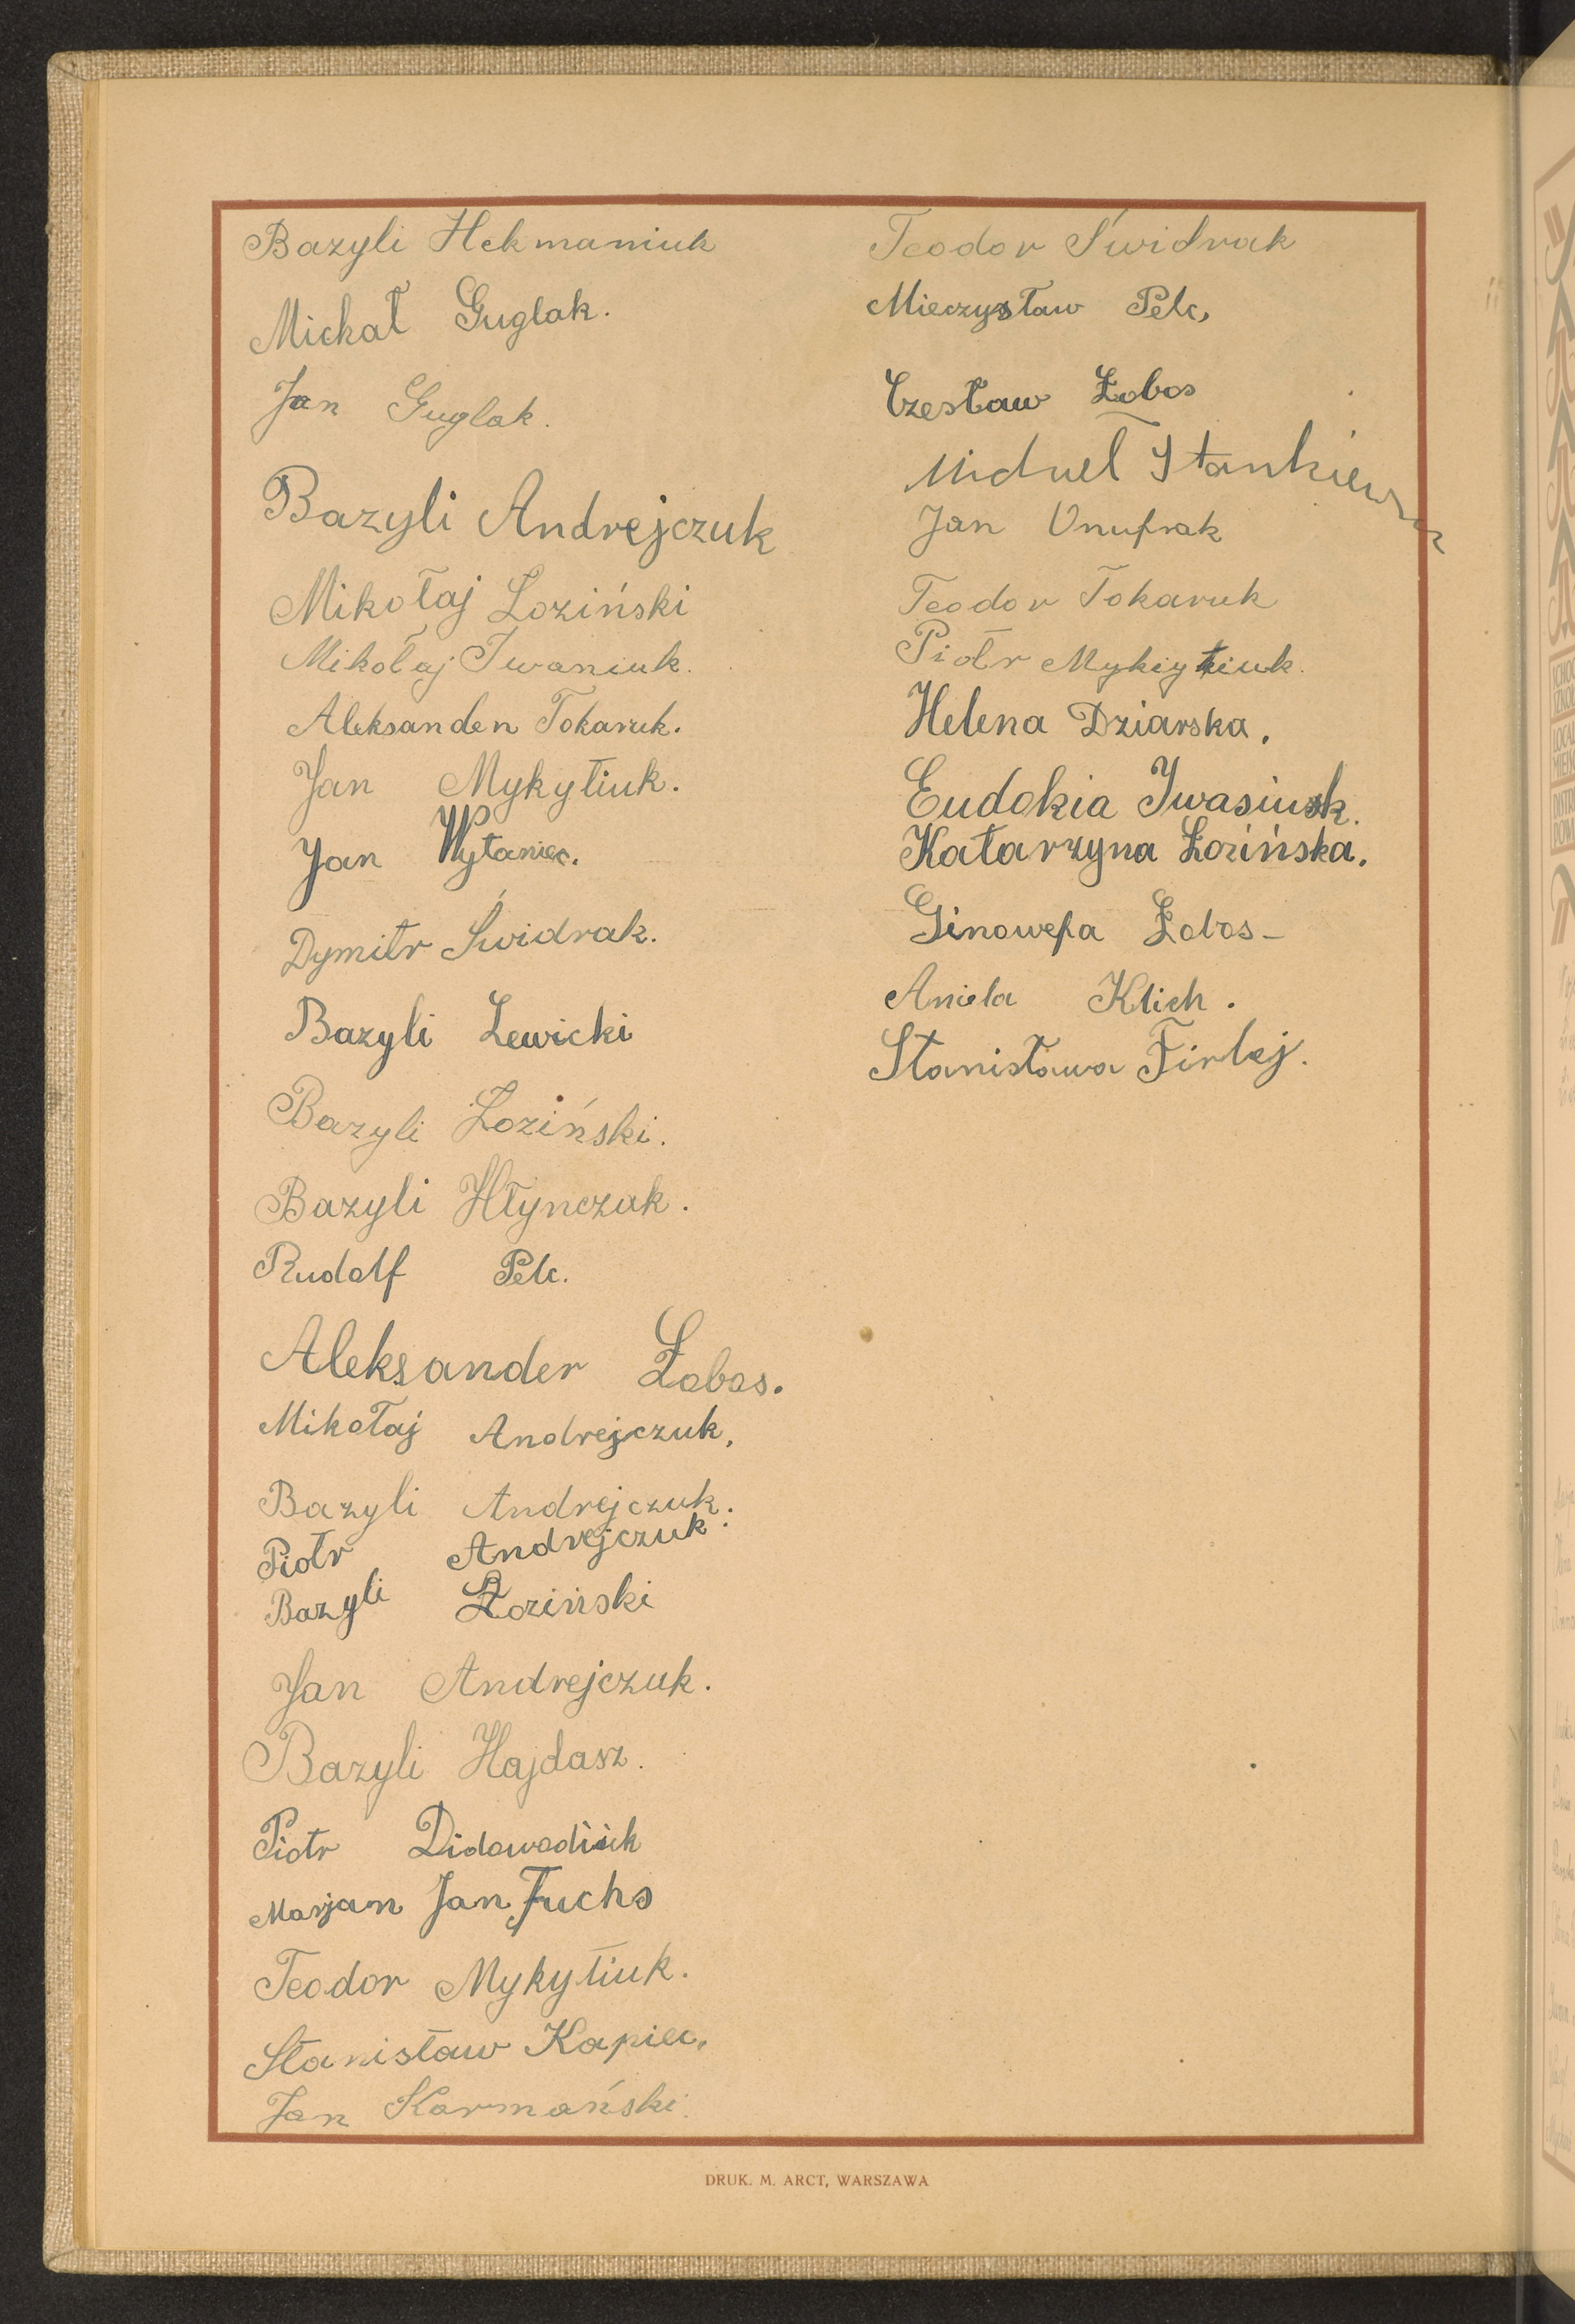 Bazyli Hekmaniuk
Michał Guglak.
Jan Guglak.
Bazyli Andrejczuk
Mikołaj Łoziński
Mikołaj Iwaniuk.
Aleksanden Tokaruk.
Jan Mykytiuk.
Jan Wytaniec.
Dymitr Świdrak.
Bazyli Lewicki
Bazyli Łoziński.
Bazyli Hłynczak.
Rudolf Pelc.
Aleksander Łobos.
Mikołaj Andrejczuk,
Bazyli Andrejczuk.
Piotr Andrejczuk.
Bazyli Łoziński
Jan Andrejczuk.
Bazyli Hajdasz.
Piotr
Marjan Jan Fuchs
Teodor Mykytiuk.
Stanisław Kapiec,
Jan Karmański.
Teodor Świdrak
Mieczysław Pelc,
Czesław Łobos
Stankiewicz
Jan Onufrak
Teodor Tokaruk
Piotr
Helena Dziarska.
Eudokia
Katarzyna Łozińska.
Ginowefa Łobos-
Aniela Klich.
Stanisława Firlej.
DRUK. M. ARCT, WARSZAWA